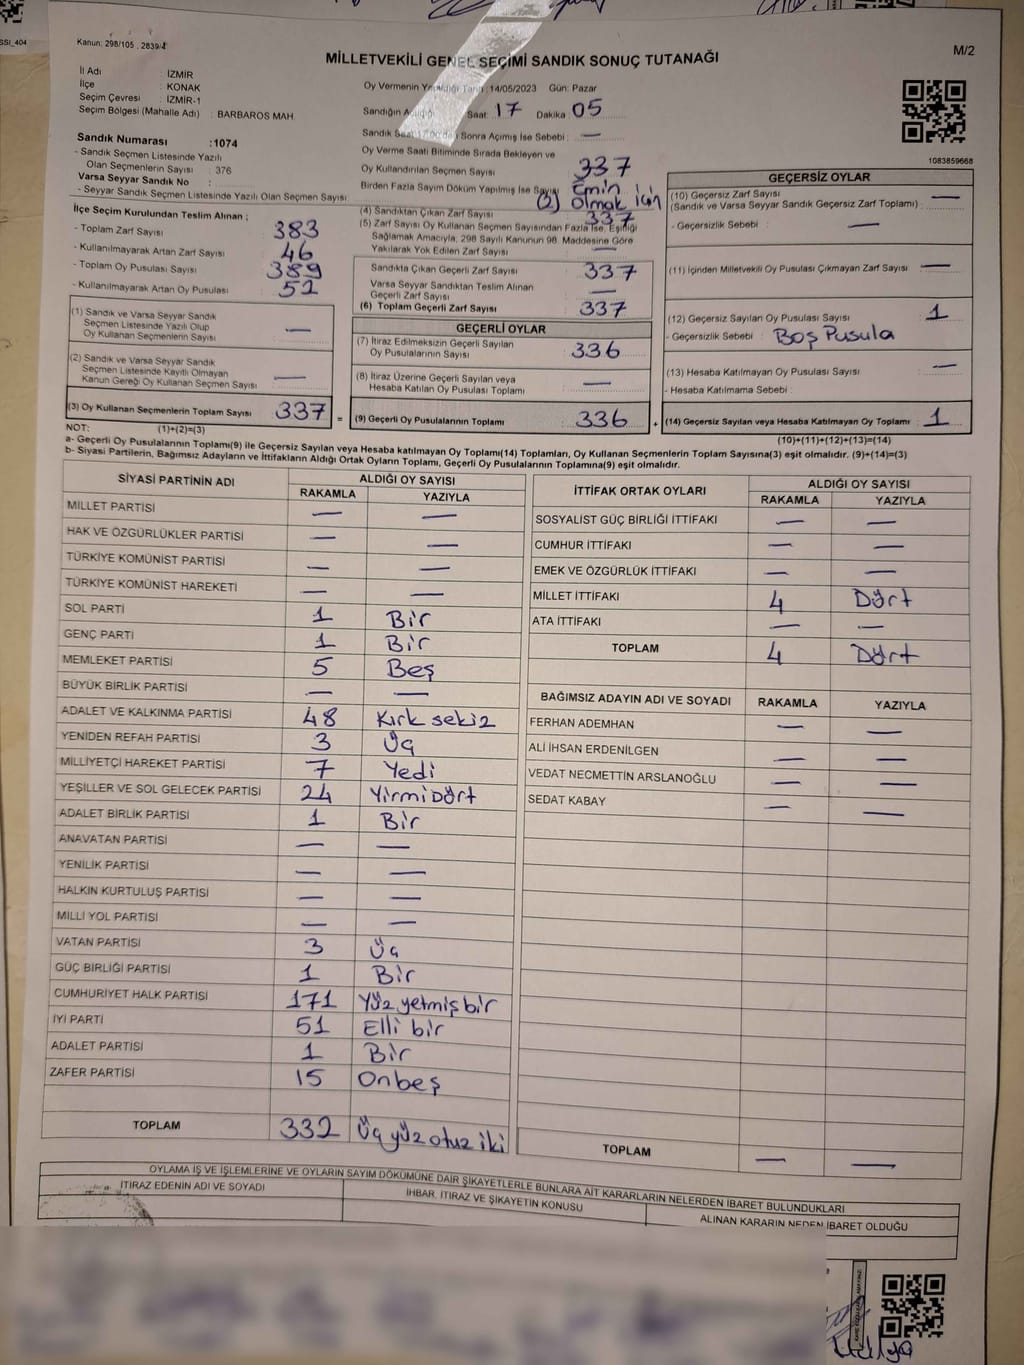 Kanun: 298/105, 2839/4
M/2
MİLLETVEKİLİ GENEL SEÇİMİ SANDIK SONUÇ TUTANAĞI
İl Adı : İZMİR
İlçe : KONAK
Seçim Çevresi : İZMİR-1
Seçim Bölgesi (Mahalle Adı) : BARBAROS MAH.
Oy Vermenin Yapıldığı Tarih :14/05/2023 Gün: Pazar
Sandığın Açıldığı Saat 17 Dakika 05
Sandık Saat Sonra Açılmış İse Sebebi : —
Sandık Numarası :1074
- Sandık Seçmen Listesinde Yazılı
Olan Seçmenlerin Sayısı : 376
Varsa Seyyar Sandık No :
- Seyyar Sandık Seçmen Listesinde Yazılı Olan Seçmen Sayısı
Oy Verme Saati Bitiminde Sırada Bekleyen ve
Oy Kullandırılan Seçmen Sayısı 337
Birden Fazla Sayım Döküm Yapılmış İse Sayısı (2) Emin olmak için
1083859668
İlçe Seçim Kurulundan Teslim Alınan ;
- Toplam Zarf Sayısı 383
- Kullanılmayarak Artan Zarf Sayısı 46
- Toplam Oy Pusulası Sayısı 389
- Kullanılmayarak Artan Oy Pusulası 52
(1) Sandık ve Varsa Seyyar Sandık
Seçmen Listesinde Yazılı Olup
Oy Kullanan Seçmenlerin Sayısı —
(2) Sandık ve Varsa Seyyar Sandık
Seçmen Listesinde Kayıtlı Olmayan
Kanun Gereği Oy Kullanan Seçmen Sayısı —
(3) Oy Kullanan Seçmenlerin Toplam Sayısı 337 =
(4) Sandıktan Çıkan Zarf Sayısı 337
(5) Zarf Sayısı Oy Kullanan Seçmen Sayısından Fazla İse, Eşitliği
Sağlamak Amacıyla, 298 Sayılı Kanunun 98. Maddesine Göre
Yakılarak Yok Edilen Zarf Sayısı —
Sandıkta Çıkan Geçerli Zarf Sayısı 337
Varsa Seyyar Sandıktan Teslim Alınan
Geçerli Zarf Sayısı —
(6) Toplam Geçerli Zarf Sayısı 337
GEÇERLİ OYLAR
(7) İtiraz Edilmeksizin Geçerli Sayılan
Oy Pusulalarının Sayısı 336
(8) İtiraz Üzerine Geçerli Sayılan veya
Hesaba Katılan Oy Pusulası Toplamı —
(9) Geçerli Oy Pusulalarının Toplamı 336 +
GEÇERSİZ OYLAR
(10) Geçersiz Zarf Sayısı
(Sandık ve Varsa Seyyar Sandık Geçersiz Zarf Toplamı) —
- Geçersizlik Sebebi : —
(11) İçinden Milletvekili Oy Pusulası Çıkmayan Zarf Sayısı —
(12) Geçersiz Sayılan Oy Pusulası Sayısı 1
- Geçersizlik Sebebi : Boş Pusula
(13) Hesaba Katılmayan Oy Pusulası Sayısı —
- Hesaba Katılmama Sebebi :
(14) Geçersiz Sayılan veya Hesaba Katılmayan Oy Toplamı 1
NOT: (1)+(2)=(3)
(10)+(11)+(12)+(13)=(14)
a- Geçerli Oy Pusulalarının Toplamı(9) ile Geçersiz Sayılan veya Hesaba katılmayan Oy Toplamı(14) Toplamları, Oy Kullanan Seçmenlerin Toplam Sayısına(3) eşit olmalıdır. (9)+(14)=(3)
b- Siyasi Partilerin, Bağımsız Adayların ve İttifakların Aldığı Ortak Oyların Toplamı, Geçerli Oy Pusulalarının Toplamına(9) eşit olmalıdır.
SİYASİ PARTİNİN ADI ALDIĞI OY SAYISI
RAKAMLA YAZIYLA
MİLLET PARTİSİ — —
HAK VE ÖZGÜRLÜKLER PARTİSİ — —
TÜRKİYE KOMÜNİST PARTİSİ — —
TÜRKİYE KOMÜNİST HAREKETİ — —
SOL PARTİ 1 Bir
GENÇ PARTİ 1 Bir
MEMLEKET PARTİSİ 5 Beş
BÜYÜK BİRLİK PARTİSİ — —
ADALET VE KALKINMA PARTİSİ 48 Kırk sekiz
YENİDEN REFAH PARTİSİ 3 Üç
MİLLİYETÇİ HAREKET PARTİSİ 7 Yedi
YEŞİLLER VE SOL GELECEK PARTİSİ 24 Yirmi Dört
ADALET BİRLİK PARTİSİ 1 Bir
ANAVATAN PARTİSİ — —
YENİLİK PARTİSİ — —
HALKIN KURTULUŞ PARTİSİ — —
MİLLİ YOL PARTİSİ — —
VATAN PARTİSİ 3 Üç
GÜÇ BİRLİĞİ PARTİSİ 1 Bir
CUMHURİYET HALK PARTİSİ 171 Yüz yetmiş bir
İYİ PARTİ 51 Elli bir
ADALET PARTİSİ 1 Bir
ZAFER PARTİSİ 15 Onbeş
TOPLAM 332 Üç yüz otuz iki
İTTİFAK ORTAK OYLARI ALDIĞI OY SAYISI
RAKAMLA YAZIYLA
SOSYALİST GÜÇ BİRLİĞİ İTTİFAKI — —
CUMHUR İTTİFAKI — —
EMEK VE ÖZGÜRLÜK İTTİFAKI — —
MİLLET İTTİFAKI 4 Dört
ATA İTTİFAKI — —
TOPLAM 4 Dört
BAĞIMSIZ ADAYIN ADI VE SOYADI RAKAMLA YAZIYLA
FERHAN ADEMHAN — —
ALİ İHSAN ERDENİLGEN — —
VEDAT NECMETTİN ARSLANOĞLU — —
SEDAT KABAY — —
TOPLAM — —
OYLAMA İŞ VE İŞLEMLERİNE VE OYLARIN SAYIM DÖKÜMÜNE DAİR ŞİKAYETLERLE BUNLARA AİT KARARLARIN NELERDEN İBARET BULUNDUKLARI
İTİRAZ EDENİN ADI VE SOYADI
İHBAR, İTİRAZ VE ŞİKAYETİN KONUSU
ALINAN KARARIN NEDEN İBARET OLDUĞU